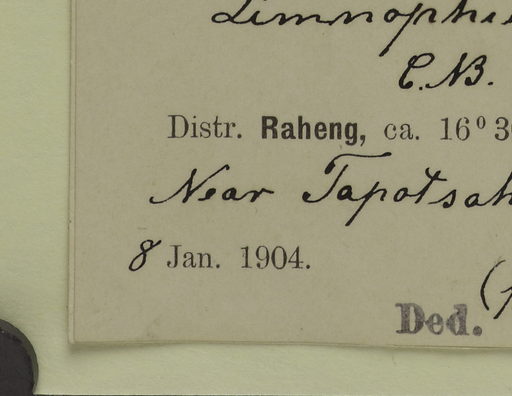 Limnophi
C.B.
Distr. Raheng, ca. 16° 3
Near Tapotsah
8 Jan. 1904.
Ded.